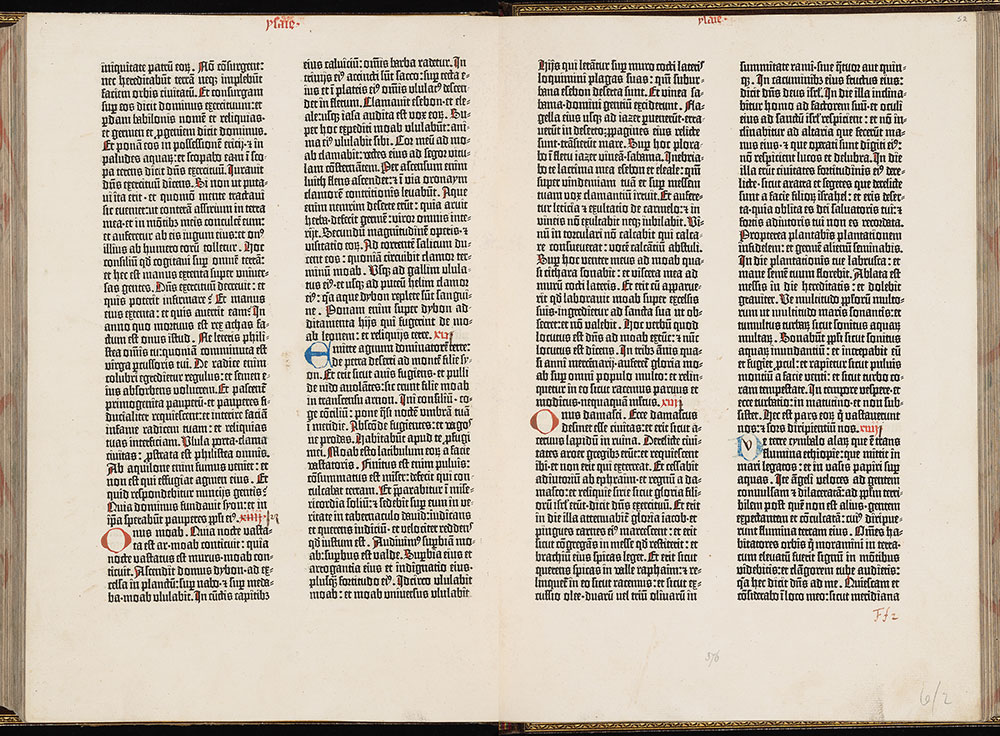 ysaie·
iniquitate patrū eoꝝ. Nō cōsurgent:
nec hereditabūt terrā neqꝫ implebūt
faciem orbis civitatū. Et consurgam
sup eos dicit dominus exercituum: et
ꝑdam babilonis nomē et reliquias·
et germen et ꝓgeniem dicit dominus.
Et ponā eā in possessionē ericij· ⁊ in
paludes aquaꝝ: et scopabo eam ī sco-
pa terens dicit dn̄s exercituū. Iuravit
dn̄s exercituū dicens. Si non ut puta-
vi ita erit· et quomō mente tractavi
sic eveniet: ut conterā assirium in terra
mea· et in mōtibꝫ meis conculcē eum:
et auferetur ab eis iugum eius: et on⁹
illius ab humero eorū tolletur. Hoc
consiliū qd cogitavi sup omnē terrā:
et hec est manus extenta super univer-
sas gentes. Dn̄s exercituū decrevit: et
quis poterit infirmare? Et manus
eius extenta: et quis avertet eam? In
anno quo mortuus est rex achas fa-
ctum est onus istud. Ne leteris phili-
stea omīs tu: quoniā comminuta est
virga ꝑcussoris tui. De radice enim
colubri egredietur regulus: et semen e-
ius absorbens volucrem. Et pascent̄
primogenita pauperū· et pauperes fi-
ducialiter requiescent: et interire faciā
infame radicem tuam: et reliquias
tuas interficiam. Ulula porta· clama
civitas: ꝓstrata est philistea omnis.
Ab aquilone enim fumus veniet: et
non est qui effugiat agmen eius. Et
quid respondebitur nuncijs gentis?
Quia dominus fundavit syon: et in
ip̄a sperabūt pauperes ppłi ei⁹. xv
Onus moab. Quia nocte vasta-
ta est ar·moab conticuit: quia
nocte vastatus est murus·moab con-
ticuit. Ascendit domus dybon·ad ex-
celsa in planctū: sup nabo·⁊ sup meda-
ba·moab ululabit. In cūctis capitibꝫ
eius calviciū: om̄is barba radetur. In
trivijs ei⁹ accincti sūt sacco: sup tecta e-
ius et ī plateis ei⁹ om̄is ululat⁹ descen-
det in fletum. Clamavit esebon et ele-
ale: usqꝫ iasa audita est vox eoꝝ. Su-
per hoc expediti moab ululabūt: ani-
ma ei⁹ ululabit sibi. Cor meū ad mo-
ab clamabit: vectes eius ad segor vitu-
lam cōsternātem. Per ascensum enim
luith flens ascendet: ⁊ ī via oronaym
clamorē contricionis levabūt. Aque
enim nemrim deserte erūt: quia aruit
herba·defecit germē: viror omnis inte-
rijt. Secundū magnitudinē operis·et
visitatio eoꝝ. Ad torrentē salicum du-
cent eos: quoniā circuibit clamor ter-
minū moab. Usqꝫ ad gallim ulula-
tus ei⁹·et usqꝫ ad puteū helim clamor
ei⁹: q̄a aque dybon replete sūt sangui-
ne. Ponam enim super dybon ad-
ditamenta hijs qui fugerint de mo-
ab leonem: et reliquijs terre. xvi
Emitte agnum dominatorē terre:
de petra deserti ad montē filie sy-
on. Et erit sicut avis fugiens·et pulli
de nido avolātes: sic erunt filie moab
in transcensu arnon. Ini consiliū· co-
ge cōciliū: pone q̄si noctē umbrā tuā
ī meridie. Absconde fugientes: et vagos
ne prodas. Habitabūt apud te ꝓfugi
mei. Moab esto latibulum eoꝝ a facie
vastatoris. Finitus est enim pulvis:
cōsummatus est miser: defecit qui con-
culcabat terram. Et ꝑparabitur ī mise-
ricordia soliū: et sedebit sup eum in ve-
ritate in tabernaculo david: iudicans
et querens iudiciū· et velociter reddens
qd iustum est. Audivim⁹ supbiam mo-
ab: supbus est valde. Supbia eius et
arrogantia eius et indignatio eius·
plusqꝫ fortitudo ei⁹. Idcirco ululabit
moab: et moab universus ululabit
ysaie·
52
Hijs qui letātur sup muro cocti lateris
loquimini plagas suas: qm̄ subur-
bana esebon deserta sunt. Et vinea sa-
bama·domini gentiū exciderunt. Fla-
gella eius usqꝫ ad iazer ꝑvenerūt· erra-
verūt in deserto: ꝓpagines eius relicte
sunt·trāsierūt mare. Sup hoc plora-
bo ī fletu iazer vineā·sabama. Inebria-
bo te lacrima mea esebon et eleale: qm̄
super vindemiam tuā et sup messem
tuam vox clamantiū irruit. Et aufere-
tur leticia ⁊ exultacio de carmelo: ⁊ in
vineis nō exultabit neqꝫ iubilabit. Vi-
nū in torculari nō calcabit qui calca-
re consueverat: vocē calcātiū abstuli.
Sup hoc venter meus ad moab qua-
si cithara sonabit: et viscera mea ad
murū cocti lateris. Et erit cū apparue-
rit qd laboravit moab super excelsis
suis·ingredietur ad sancta sua ut ob-
secret: et nō valebit. Hoc verbū quod
locutus est dn̄s ad moab extūc: ⁊ nūc
locutus est dicens. In tribꝫ ānis qua-
si anni mercenarij·auferet̄ gloria mo-
ab sup omni populo multo: et relin-
quetur in eo sicut racemus parvus et
modicus·nequaquā multus. xvii
Onus damasci. Ecce damascus
desinet esse civitas: et erit sicut a-
cervus lapidū in ruina. Derelicte civi-
tates aroer gregibꝫ erūt: et requiescent
ibi·et non erit qui exterreat. Et cessabit
adiutoriū ab ephraim·et regnū a da-
masco: et reliquie sirie sicut gloria fili-
orū isrl erūt·dicit dn̄s exercituū. Et erit
in die illa attenuabit̄ gloria iacob·et
pinguis carnes ei⁹ marcescent: et erit
sicut cōgregās in messe qd restiterit: et
brachiū eius spicas leget. Et erit sicut
querens spicas in valle raphaim: ⁊ re-
linquet̄ in eo sicut racemus: et sicut ex-
cussio olee·duarū vel triū olivarū in
summitate rami·sive q̄tuor aut quin-
qꝫ. In cacuminibꝫ eius fructus eius:
dicit dn̄s deus isrl. In die illa inclina-
bitur homo ad factorem suū·et oculi
eius ad sanctū isrl respicient: et nō in-
clinabitur ad altaria que fecerūt ma-
nus eius·⁊ que operati sunt digiti ei⁹:
nō respiciet lucos et delubra. In die
illa erūt civitates fortitudinis ei⁹ dere-
licte·sicut aratra et segetes que derelicte
sunt a facie filioꝝ israhel: et eris deser-
ta·quia oblita es dei salvatoris tui: ⁊
fortis adiutoris tui non es recordata.
Propterea plantabis plantationem
infidelem: et germē alienū seminabis.
In die plantationis tue labrusca: et
mane semē tuum florebit. Ablata est
messis in die hereditatis: et dolebit
graviter. Ve multitudo pploꝝ multo-
rum ut multitudo maris sonantis: et
tumultus turbaꝝ sicut sonitus aquaꝝ
multaꝝ. Sonabūt ppłi sicut sonitus
aquaꝝ inundantiū: et increpabit eū
et fugiet ꝓcul: et rapietur sicut pulvis
montiū a facie venti: et sicut turbo co-
ram tempestate. In tempore vespere·et
ecce turbatio: in matutino·et non sub-
sistet. Hec est pars eoꝝ q̄ vastaverunt
nos: ⁊ sors diripientiū nos. xviii
Ve terre cymbalo alaꝝ que ē trans
flumina ethiopie: que mittit in
mari legatos: et in vasis papiri sup
aquas. Ite āgeli veloces ad gentem
convulsam ⁊ dilaceratā: ad ppłm terri-
bilem post quē non est alius·gentem
expectantem et cōculcatā: cui⁹ diripue-
runt flumina terram eius. Om̄es ha-
bitatores orbis q̄ moramini in terra·
cum elevatū fuerit signū in mōtibus
videbitis: et clāgorem tube audietis:
q̄a hec dicit dn̄s ad me. Quiescam et
cōsiderabo ī loco meo: sicut meridiana
Ff 2
376
6/2